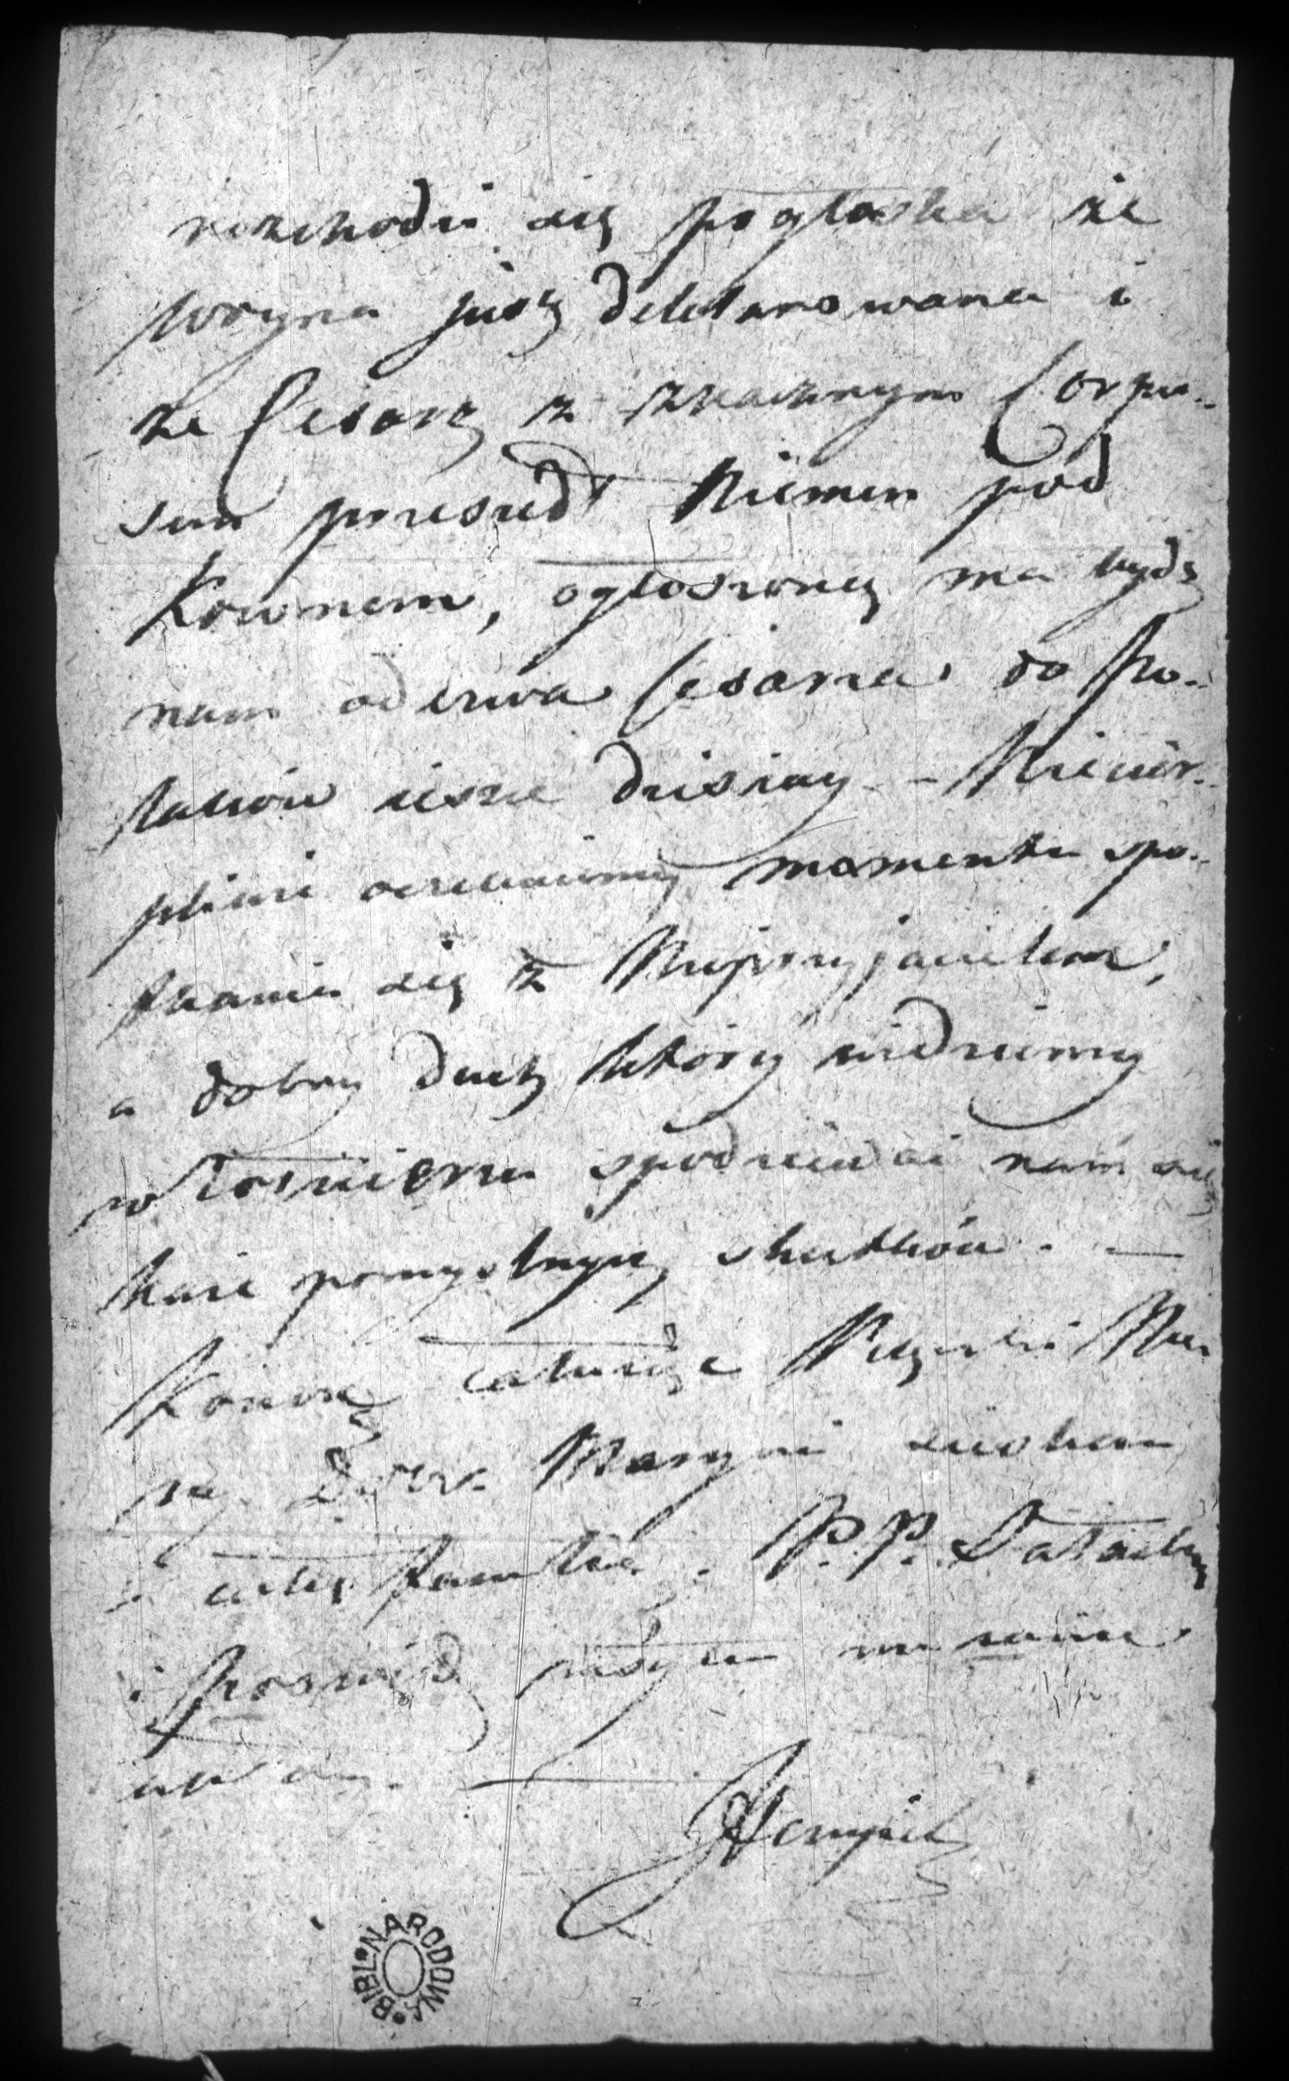 rozchodzi się pogłoska że
woyna już deklarowana i
że Cesarz z znacznym Corpu-
sem przeszedł Niemen pod
Kownem, ogłoszoną ma bydź
nam odezwa Cesarza do Po-
laków ieszcze dzisiay - Niecier-
pliwie oczekuiemy momentu spo-
tkania się z Nieprzyjacielem,
a dobry duch który widziemy
w Żołnierzu spodziewać nam się
każe pomyślnych skutków. —
Kończę całuiąc
Maryni
i całey familii. P.P.
i
Hempel
BIBL. NARODOWA